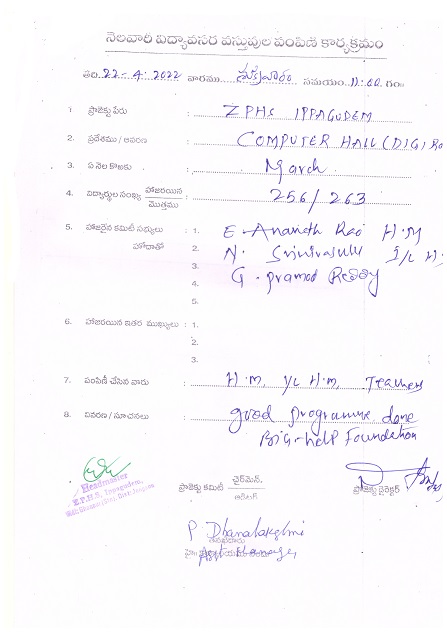 నెలవారి విద్యావసర వస్తువుల పంపిణి కార్యక్రమం
తేది. 22-4-2022 వారము శుక్రవారం సమయం. 11:00 గం
1 ప్రాజెక్టు పేరు : ZPHS IPPAGUDEM
2. ప్రదేశము / ఆవరణ : COMPUTER HALL (DIG) Ro
3. ఏ నెల కొఱకు : March
4. విద్యార్థుల సంఖ్య హాజరయిన / మొత్తము : 256/263
5. హాజరైన కమిటీ సభ్యులు హోదాతో : 1. E. Ananth Rao H.M
2. N. Srinivasulu I/c H.
3. G. pramod Reddy
4.
5.
6. హాజరయిన ఇతర ముఖ్యులు : 1.
2.
3.
7. పంపిణీ చేసిన వారు : H.M, I/c H.M, Teachers
8. వివరణ / సూచనలు : good programme done
BIG-help Foundation
Headmaster
Z.P.H.S. Ippagudem,
ప్రాజెక్టు కమిటీ ఛైర్మెన్,
ప్రాజెక్టు డైరెక్టర్
P Dhanalakshmi